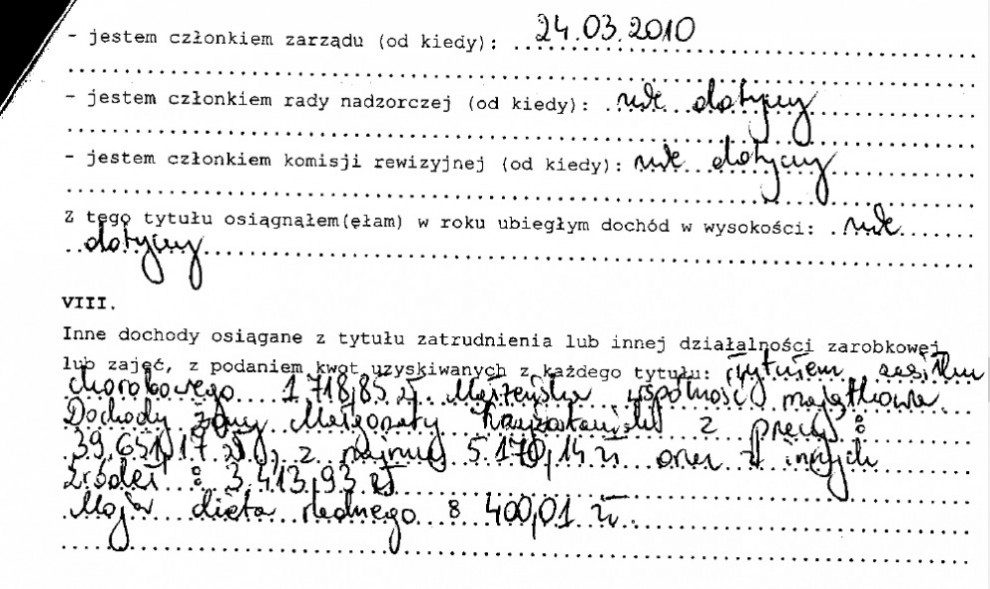 - jestem członkiem zarządu (od kiedy): 24.03.2010
- jestem członkiem rady nadzorczej (od kiedy): nie dotyczy
- jestem członkiem komisji rewizyjnej (od kiedy): nie dotyczy
Z tego tytułu osiągnąłem(ęłam) w roku ubiegłym dochód w wysokości: nie
dotyczy
VIII.
Inne dochody osiągane z tytułu zatrudnienia lub innej działalności zarobkowej
lub zajęć, z podaniem kwot uzyskiwanych z każdego tytułu: tytułem zasiłku
chorobowego 1 718,85 zł Małżeńska wspólność majątkowa
Dochody żony Małgorzaty z pracy:
39.651,17 zł, z najmu 5.170,14 zł oraz z innych
źródeł : 3.413,93 zł
Moja dieta radnego 8 400,01 zł